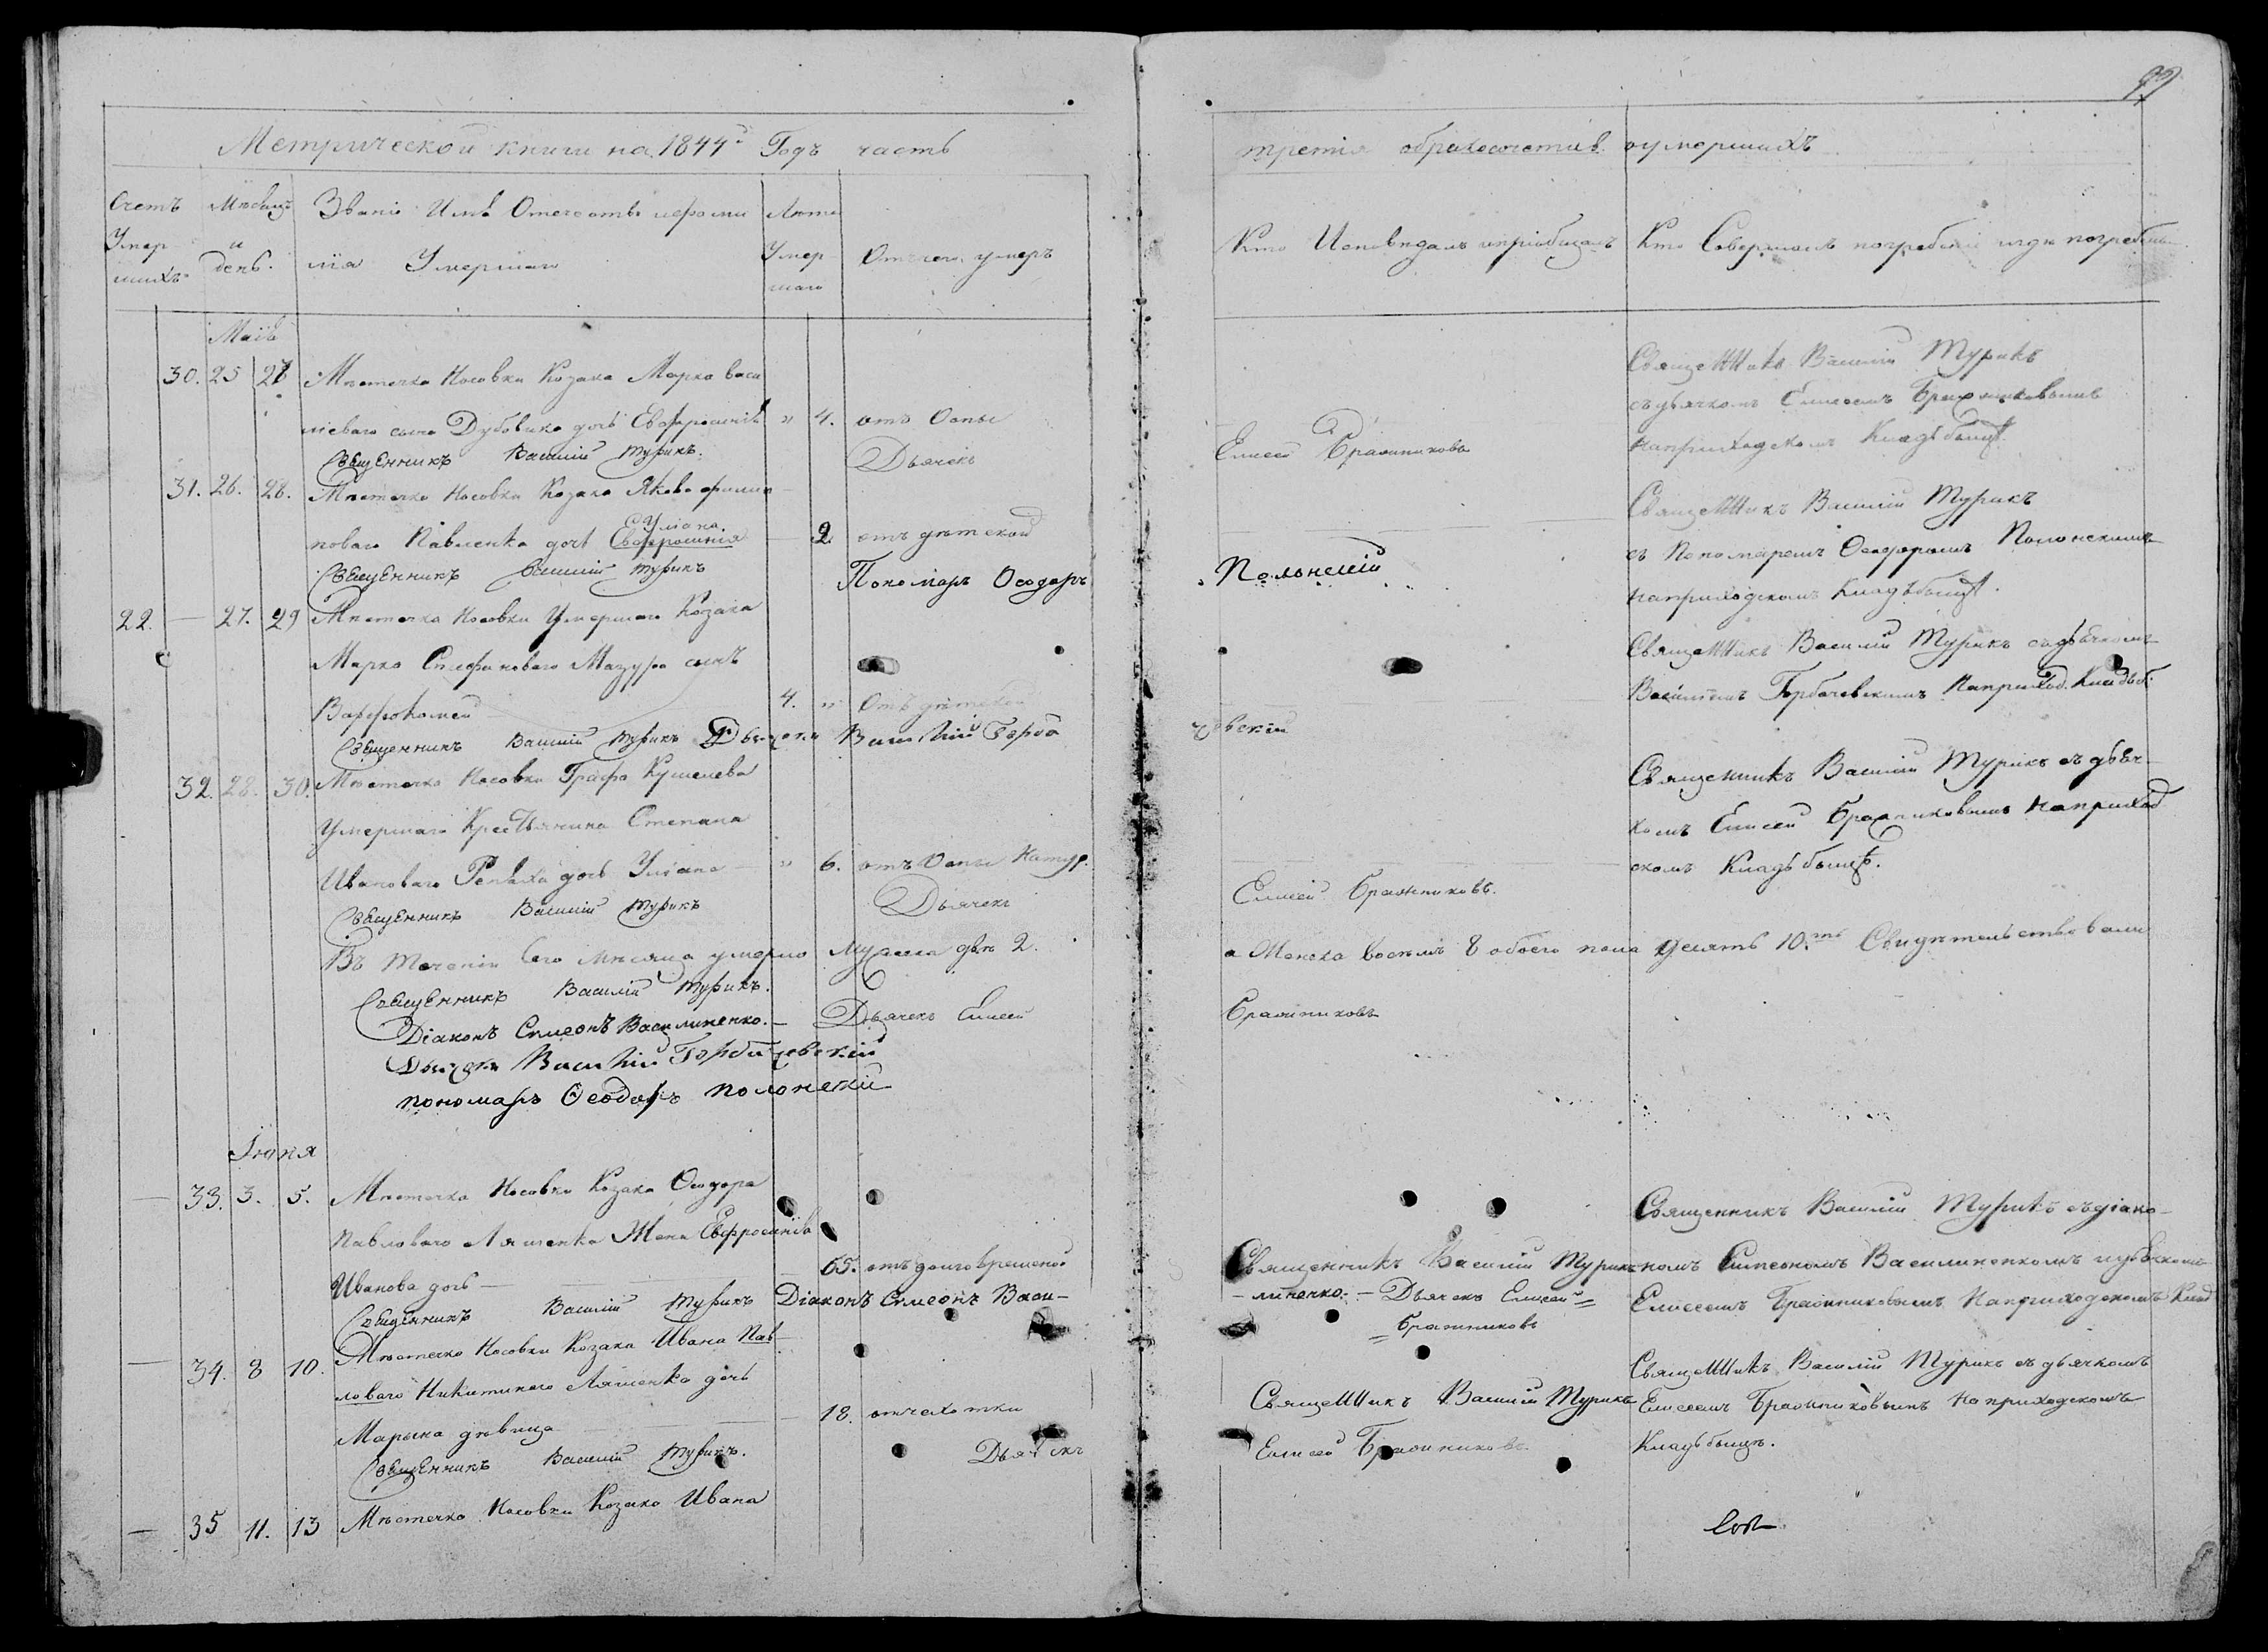 99
Метрической книги на 1844й Годъ часть
третія обракосочетав оумершихъ
Счетъ Умершихъ
Мѣсяцъ и день.
Званіе Имѣ Отечество ифамилія Умершаго
Лѣта Умершаго
Отчего умеръ
Кто Исповѣдалъ ипріобщалъ
Кто Совершалъ погребеніе игдѣ погребены
Маій
30. 25 27 Мѣстечка Носовки Козака Марка васи
ліеваго сына Дубовика дочь Евфросинія " 4. отъ Оспы
Священникъ Василій Турикъ. Дьячекъ
Елисей Бражниковъ
Священникъ Василій Турикъ
съдьячкомъ Елисеемъ Бражниковымъ
наприходскомъ Кладъбищѣ.
31. 26. 28. Мѣстечка Носовки Козака Якова филип
поваго Павленка дочь Евфросинія Уліана 2 отъ дѣтской
Священникъ Василій Турикъ Пономарь Ѳеодоръ
Полонскій
Священникъ Василій Турикъ
съ Пономаремъ Ѳеодоромъ Полонскимъ
наприходскомъ Кладъбищѣ.
22. — 27. 29 Мѣстечка Носовки Умершаго Козака
Марка Стефановаго Мазура сынъ
Варфоломей 4. " Отъ дѣтской
Священникъ Василій Турикъ Дьячекъ Василій Горба
чевскій
Священникъ Василій Турикъ съдьячкомъ
Василіемъ Горбачевскимъ Наприход. Кладъб:
32. 28. 30. Мѣстечка Носовки Графа Кушелева
Умершаго Крестьянина Степана
Ивановаго дочь Уліана " 6. отъ Оспы Натур.
Священникъ Василій Турикъ Дьячекъ
Елисей Бражниковъ.
Священникъ Василій Турикъ съ дьяч-
комъ Елисей Бражниковымъ наприход
скомъ Кладъбищѣ.
Въ теченіи Сего мѣсяца умерло мужеска двѣ 2. а Женска восемъ 8 обоего пола десять 10.ть Свидѣтельствовали
Священникъ Василій Турикъ.
Діаконъ Симеонъ Василиненко. Дьячекъ Елисей Бражниковъ
Дьячекъ Василій Горбачевскій
пономарь Ѳеодоръ полонскій
Іюня
— 33. 3. 5. Мѣстечка Носовки Козака Ѳеодора
Павловаго Ляшенка Жена Евфросинія
Иванова дочь 65. отъ долговременой
Священникъ Василій Турикъ Діаконъ Симеонъ Васи-
Священникъ Василій Турикъ
-линенко.- Дьячекъ Елисей=
=Бражниковъ
Священникъ Василій Турикъ съдіако-
номъ Симеономъ Василиненкомъ идьячкомъ
Елисеемъ Бражниковымъ Наприходскомъ Клад
— 34. 8 10. Мѣстечка Носовки Козака Ивана Пав-
ловаго Никитинаго Ляшенка дочь
Марьяна дѣвица 18. отчахотки
Священникъ Василій Турикъ. Дьячекъ
Священникъ Василій Турикъ
Елисей Бражниковъ.
Священникъ Василій Турикъ съ дьячкомъ
Елисеемъ Бражниковымъ Наприходскомъ
Кладъбищѣ.
— 35 11. 13 Мѣстечка Носовки Козака Ивана